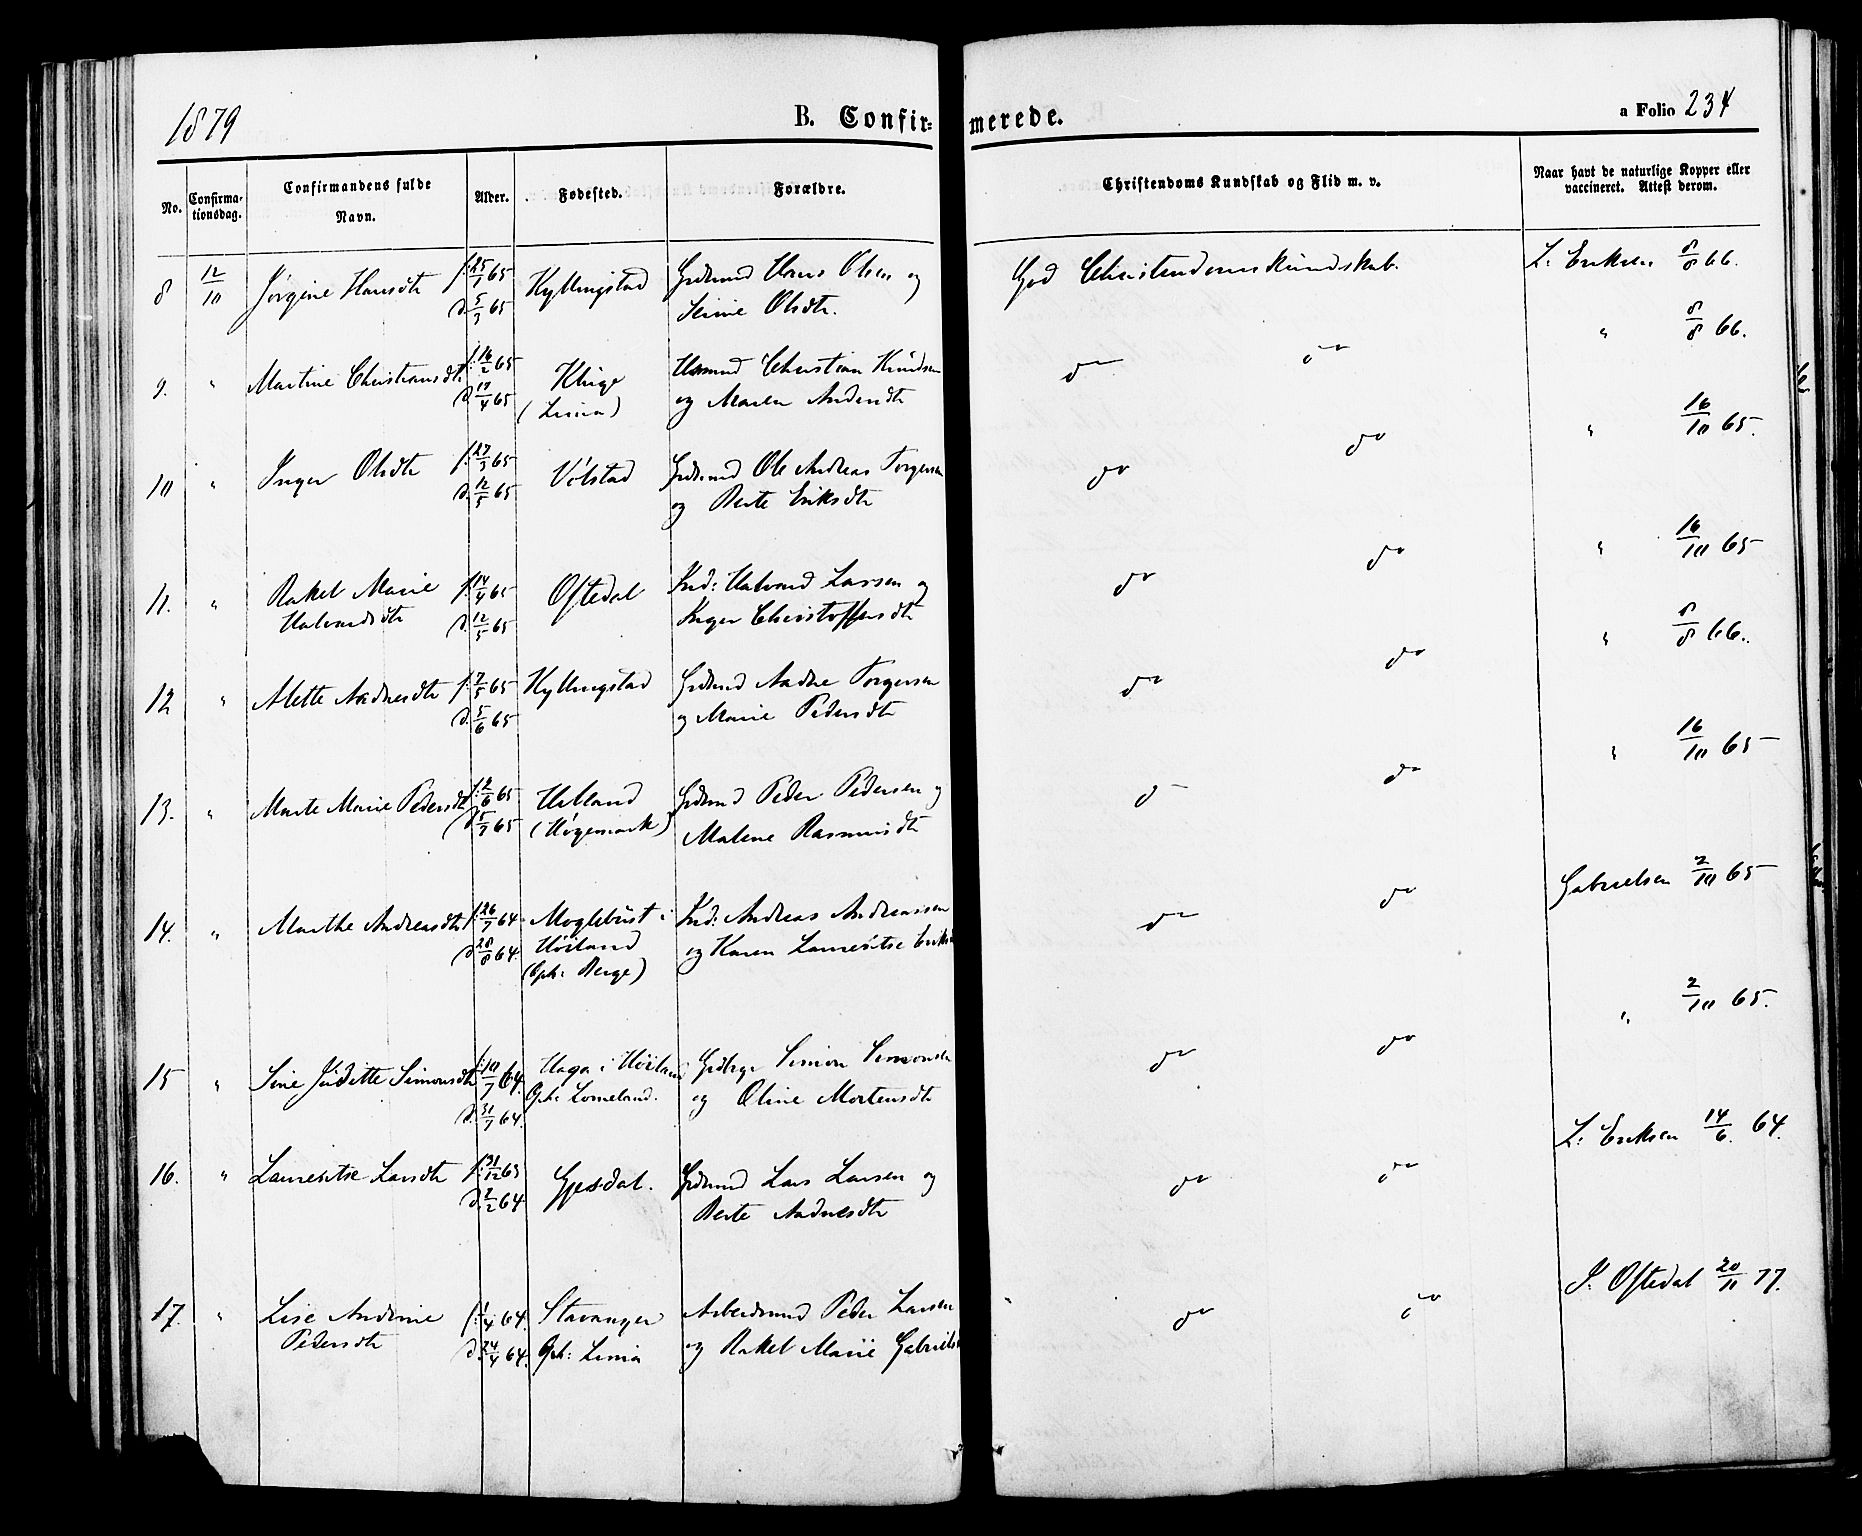 1879
B. Confirmerede.
a Folio 234
No.
Confirmationsdag.
Confirmandens fulde Navn.
Alder.
Fødested.
Forældre.
Christendoms Kundskab og Flid m. v.
Naar havt de naturlige Kopper eller vaccineret. Attest derom.
8 12/10 Jørgine Hansdtr f: 25/1 65 Kyllingstad Grdmnd Hans Olsen og God Christendomskundskab. L: Eriksen 8/8 66.
d. 5/3 65 Sirine Olsdtr.
9. " Martine Christiansdtr f: 16/2 65 Husmnd Christian Knudsen do do " 8/8 66.
d. 17/4 65 (Lima) og Maren
10 " Inger Olsdtr f: 27/3 65 Vølstad Grdmnd Ole Andreas Torgersen do do " 16/10 65.
d. 12/5 65 og Berte Eriksdtr
11. " Rakel Marie f: 14/4 65 Oftedal Ind: Halvard Larsen og do do " 16/10 65
Halvardsdtr d. 12/5 65 Inger Christoffersdtr
12 " Mette Aadnesdtr f: 7/5 65 Kyllingstad Grdmnd Aadne Torgersen do do " 8/8 66.
d. 5/6 65 og Marie Pedersdtr
13. " Marte Marie Pedersdtr f: 2/6 65 Helland Grdmnd Peder Pedersen og do do " 16/10 65
d. 5/7 65 (Høgemork) Malene Rasmusdtr
14. " Marthe Andreasdtr f: 26/7 64 Moglebust i Ind: Andreas Andreassen do do Gabrielsen 2/10 65
d. 28/8 64. Høiland og Karen Lauresitse Eriks
(Oph: Berge)
15 " Sine Judette Simonsdtr f: 10/7 64. Haga i Høiland Simon Simonsen do do " 2/10 65.
d. 31/7 64. Oph: Lomeland. og Oline Mortensdtr
16. " Lauresitse Larsdtr f: 31/12 63 Gjesdal. Grdmnd Lars Larsen og do do L: Eriksen 14/6. 64.
d. 2/2 64 Berte Aadnesdtr
17. " Lise Andrine f: 1/4 64. Stavanger Arbeidsmnd Peder Larsen do do J: Oftedal 20/11 77.
Pedersdtr d. 24/4 64. Oph: Lima og Rakel Marie Gabriels